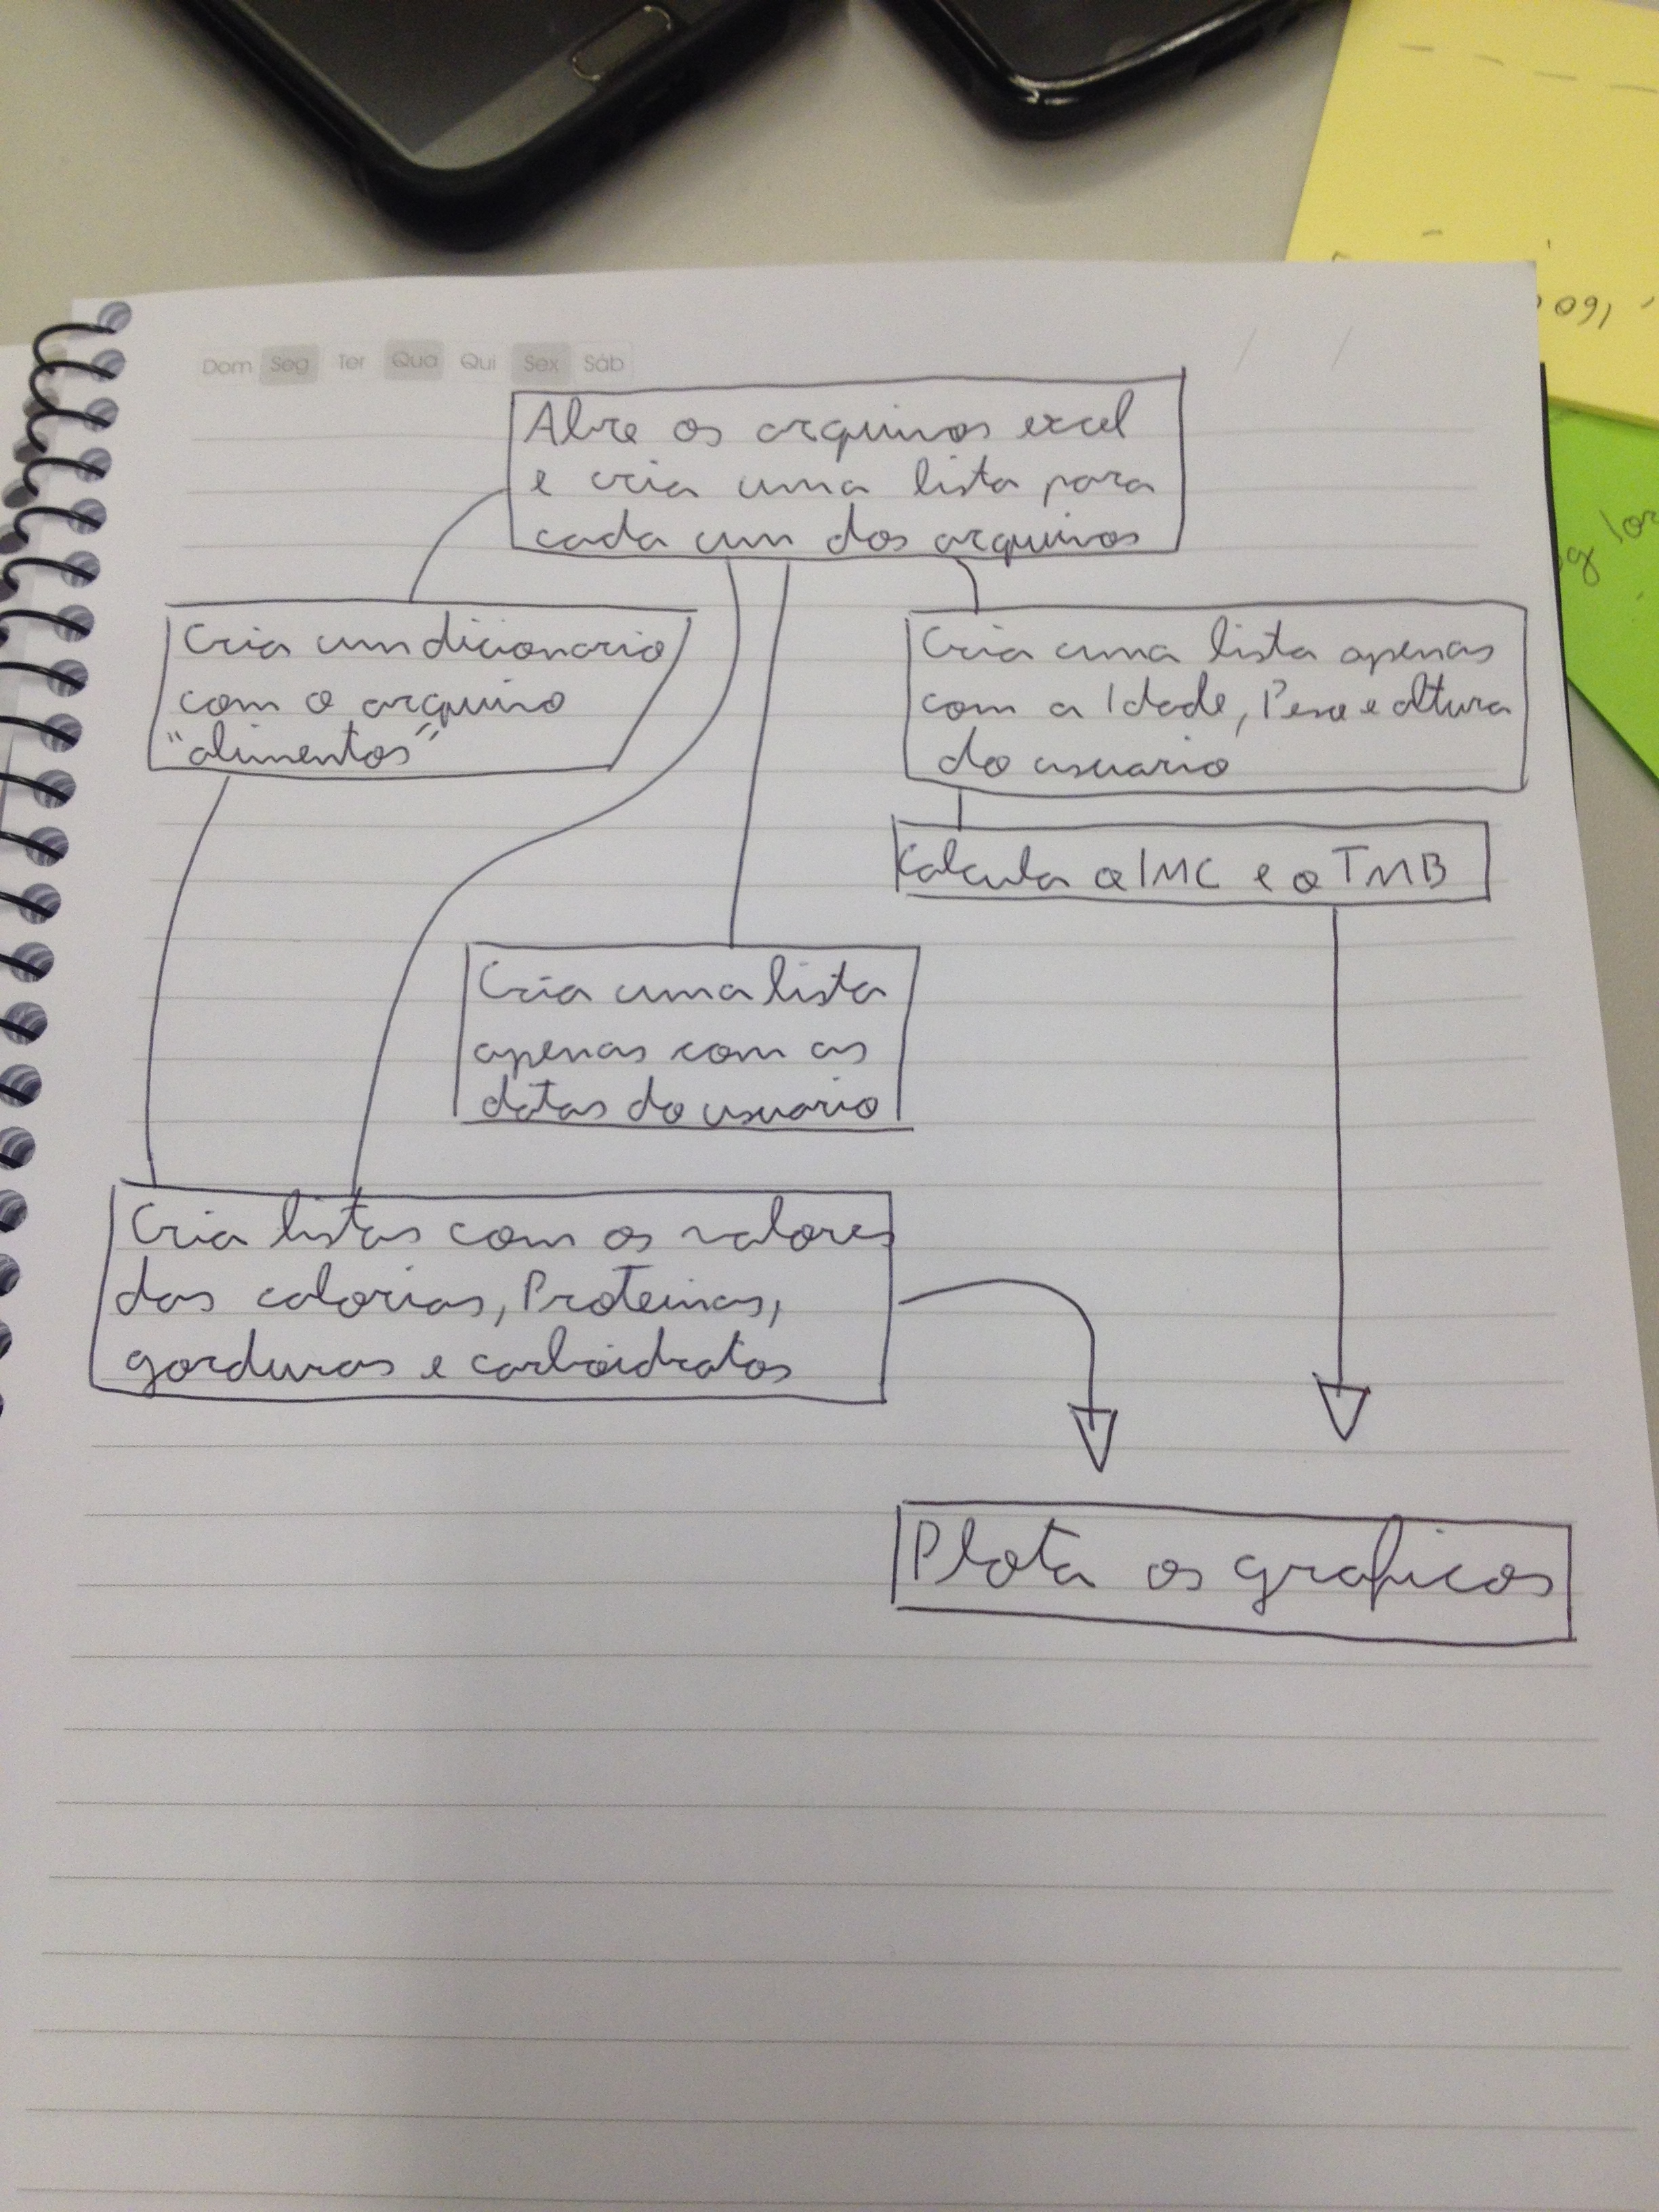 Dom Seg Ter Qua Qui Sex Sáb / /
Abre os arquivos excel
e cria uma lista para
cada um dos arquivos
Cria um dicionario
com o arquivo
"alimentos"
Cria uma lista apenas
com a Idade, Peso e altura
do usuario
Calcula o IMC e o TMB
Cria uma lista
apenas com as
datas do usuario
Cria listas com os valores
das calorias, Proteinas,
gorduras e carboidratos
Plota os graficos